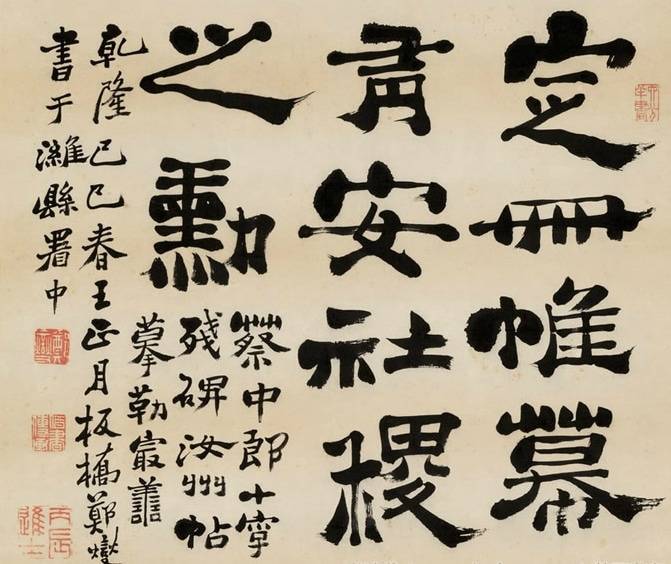 定冊帷幕
有安社稷
之勳
蔡中郎十字
残碑汝州帖
摹勒最譱
乾隆己巳春王正月板橋鄭燮
書于濰縣署中
丙辰進士